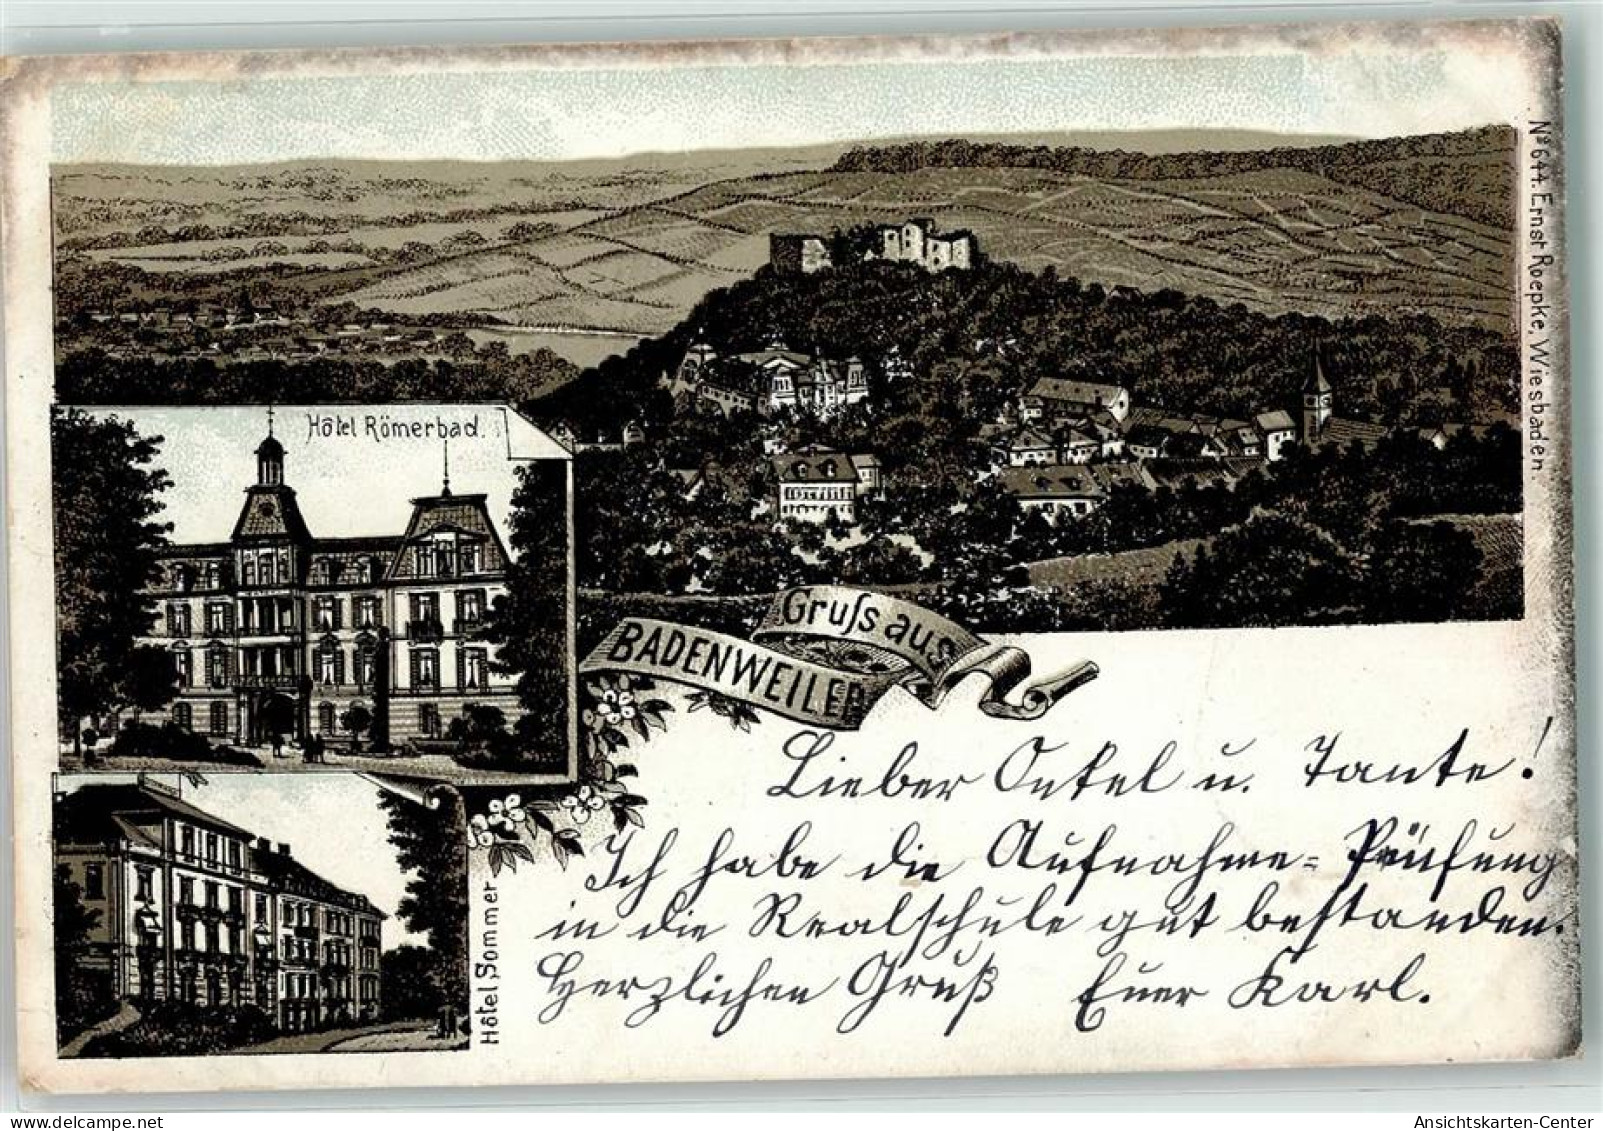 Nº 644. Ernst Roepke, Wiesbaden.
Hôtel Römerbad.
Gruſs aus
BADENWEILER
Hôtel Sommer
Lieber Onkel u. Tante!
Ich habe die Aufnahme=Prüfung
in die Realschule gut bestanden.
Herzlichen Gruß Euer Karl.
Ansichtskarten-Center